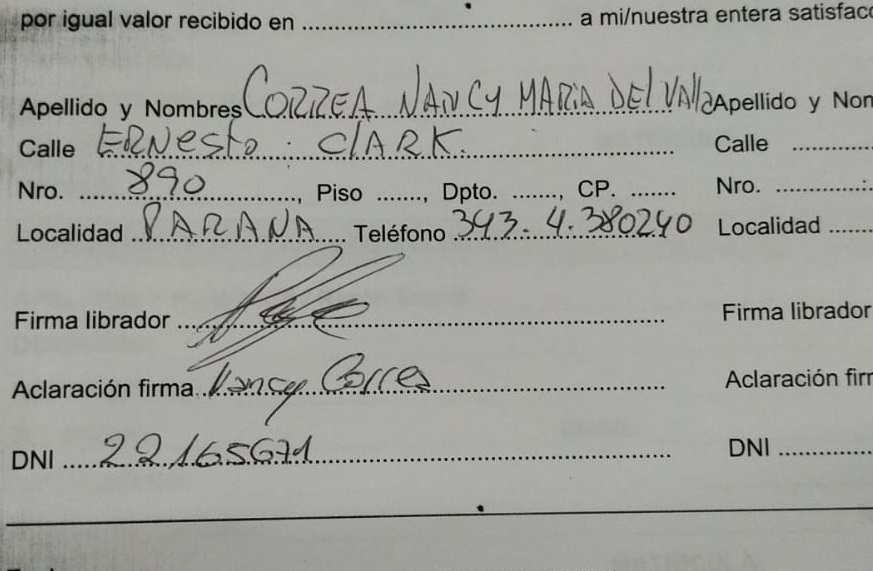 por igual valor recibido en .......................................... a mi/nuestra entera satisfac
Apellido y Nombres CORREA NANCY MARIA DEL VALLE Apellido y Non
Calle ERNESTO CLARK. Calle ............
Nro. 890, Piso ......., Dpto. ......., CP. ....... Nro. ............
Localidad PARANA Teléfono 343.4.380240 Localidad .......
Firma librador .......................................... Firma librador
Aclaración firma Nancy Correa Aclaración firr
DNI 22165671 DNI ............